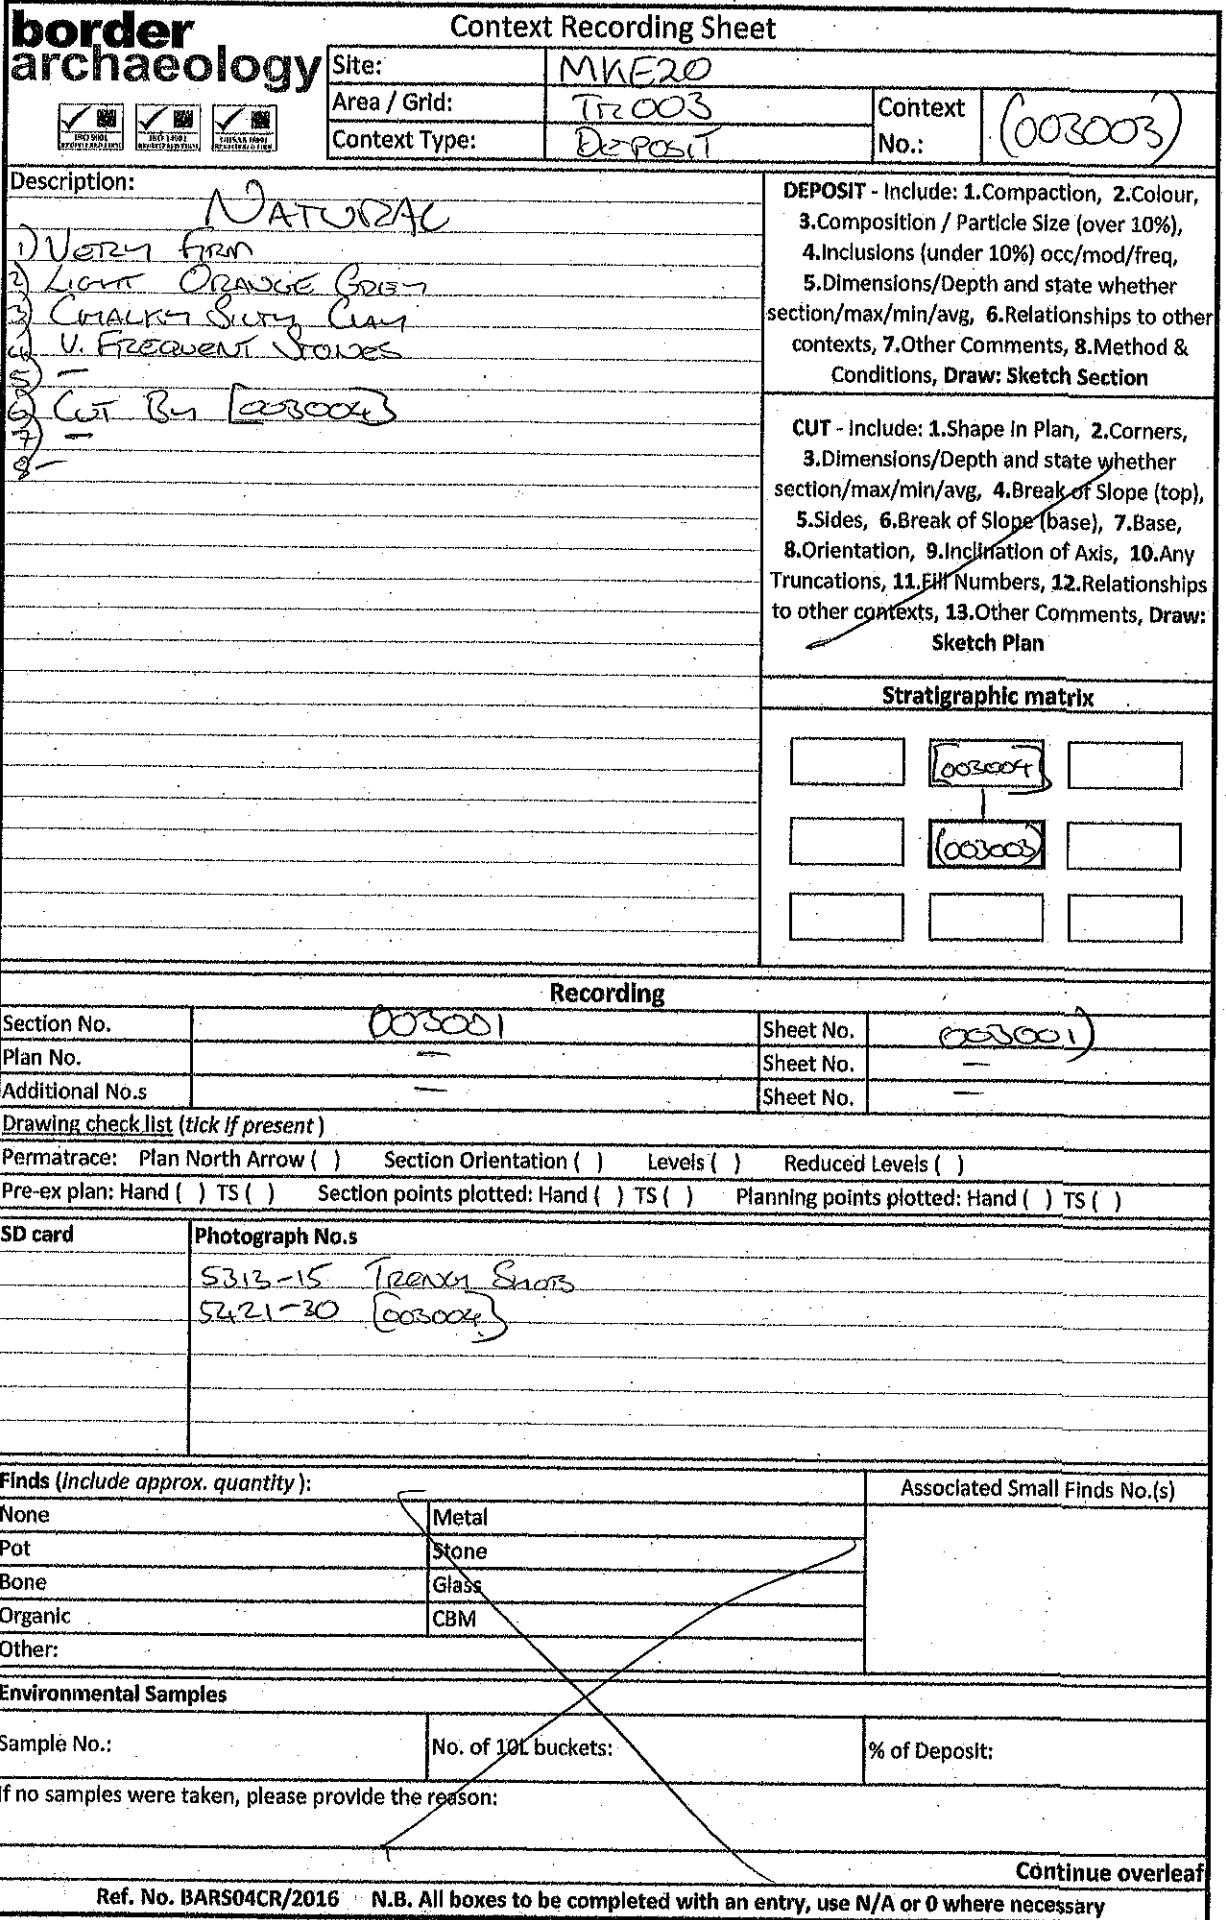 border
archaeology
Context Recording Sheet
Site: MKE20
Area / Grid: TR003
Context Type: DEPOSIT
Context No.: (003003)
ISO 9001
REGISTERED FIRM
ISO 14001
REGISTERED FIRM
OHSAS 18001
REGISTERED FIRM
Description:
NATURAL
1) VERY FIRM
2) LIGHT ORANGE GREY
3) CHALKY SILTY CLAY
4) V. FREQUENT STONES
5) -
6) CUT BY [003004]
7) -
8 -
DEPOSIT - Include: 1.Compaction, 2.Colour,
3.Composition / Particle Size (over 10%),
4.Inclusions (under 10%) occ/mod/freq,
5.Dimensions/Depth and state whether
section/max/min/avg, 6.Relationships to other
contexts, 7.Other Comments, 8.Method &
Conditions, Draw: Sketch Section
CUT - Include: 1.Shape in Plan, 2.Corners,
3.Dimensions/Depth and state whether
section/max/min/avg, 4.Break of Slope (top),
5.Sides, 6.Break of Slope (base), 7.Base,
8.Orientation, 9.Inclination of Axis, 10.Any
Truncations, 11.Fill Numbers, 12.Relationships
to other contexts, 13.Other Comments, Draw:
Sketch Plan
Stratigraphic matrix
[003004]
(003003)
Recording
Section No. 003001 Sheet No. 003001)
Plan No. - Sheet No. -
Additional No.s - Sheet No. -
Drawing check list (tick if present )
Permatrace: Plan North Arrow ( ) Section Orientation ( ) Levels ( ) Reduced Levels ( )
Pre-ex plan: Hand ( ) TS ( ) Section points plotted: Hand ( ) TS ( ) Planning points plotted: Hand ( ) TS ( )
SD card Photograph No.s
5313-15 TRENCH SHOTS
5421-30 [003004]
Finds (include approx. quantity ): Associated Small Finds No.(s)
None Metal
Pot Stone
Bone Glass
Organic CBM
Other:
Environmental Samples
Sample No.: No. of 10L buckets: % of Deposit:
If no samples were taken, please provide the reason:
Continue overleaf
Ref. No. BARS04CR/2016 N.B. All boxes to be completed with an entry, use N/A or 0 where necessary